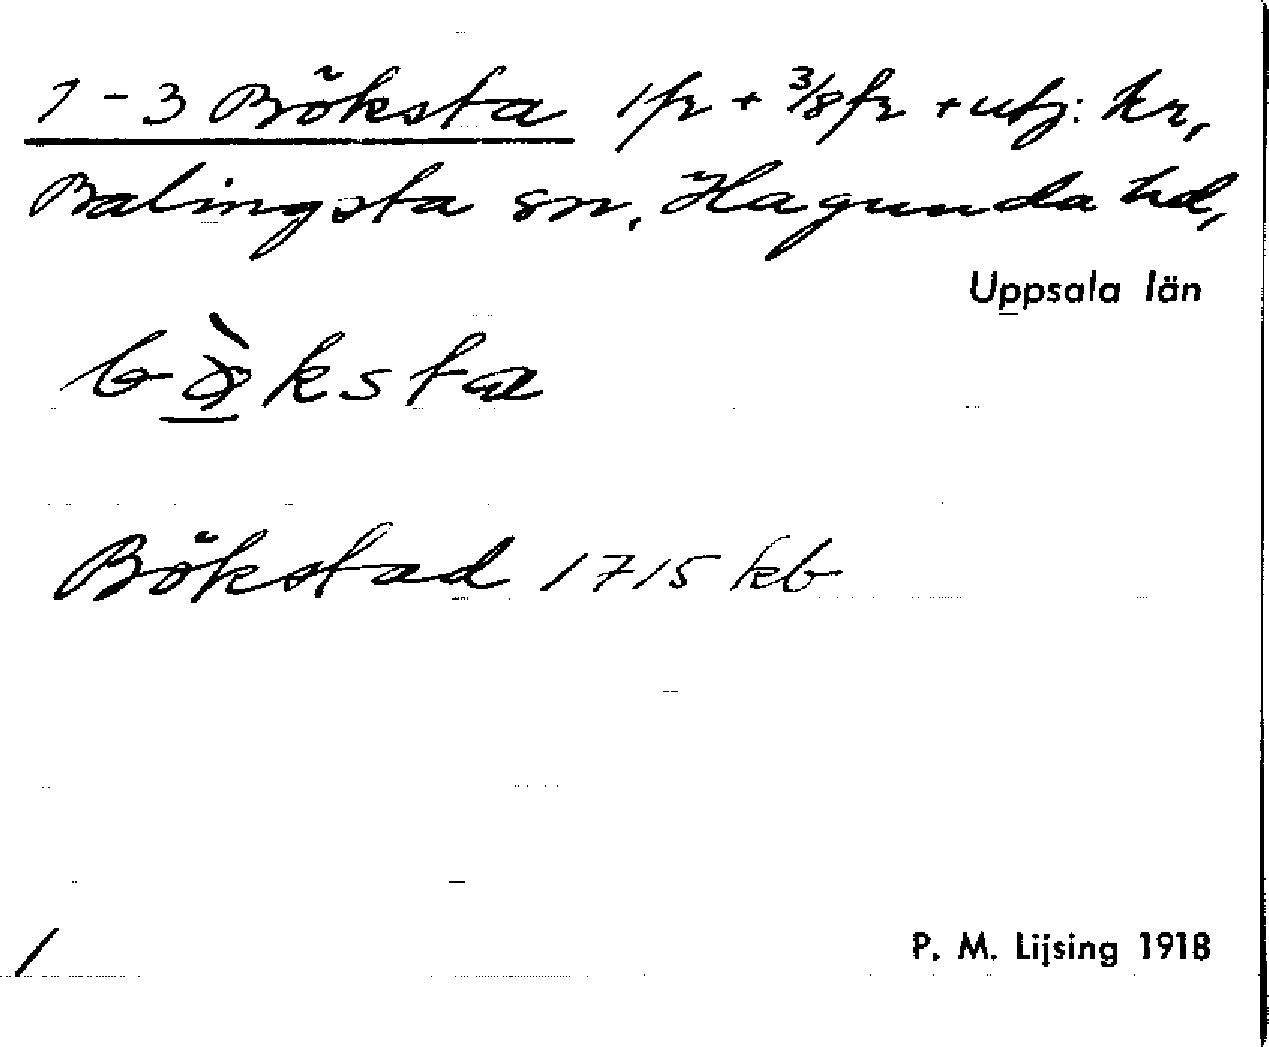 1-3 Böksta 1 fr + 3/8 fr + utj: kr,
Balingsta sn, Hagunda hd,
Uppsala län
Bökstad 1715 kb
P. M. Lijsing 1918